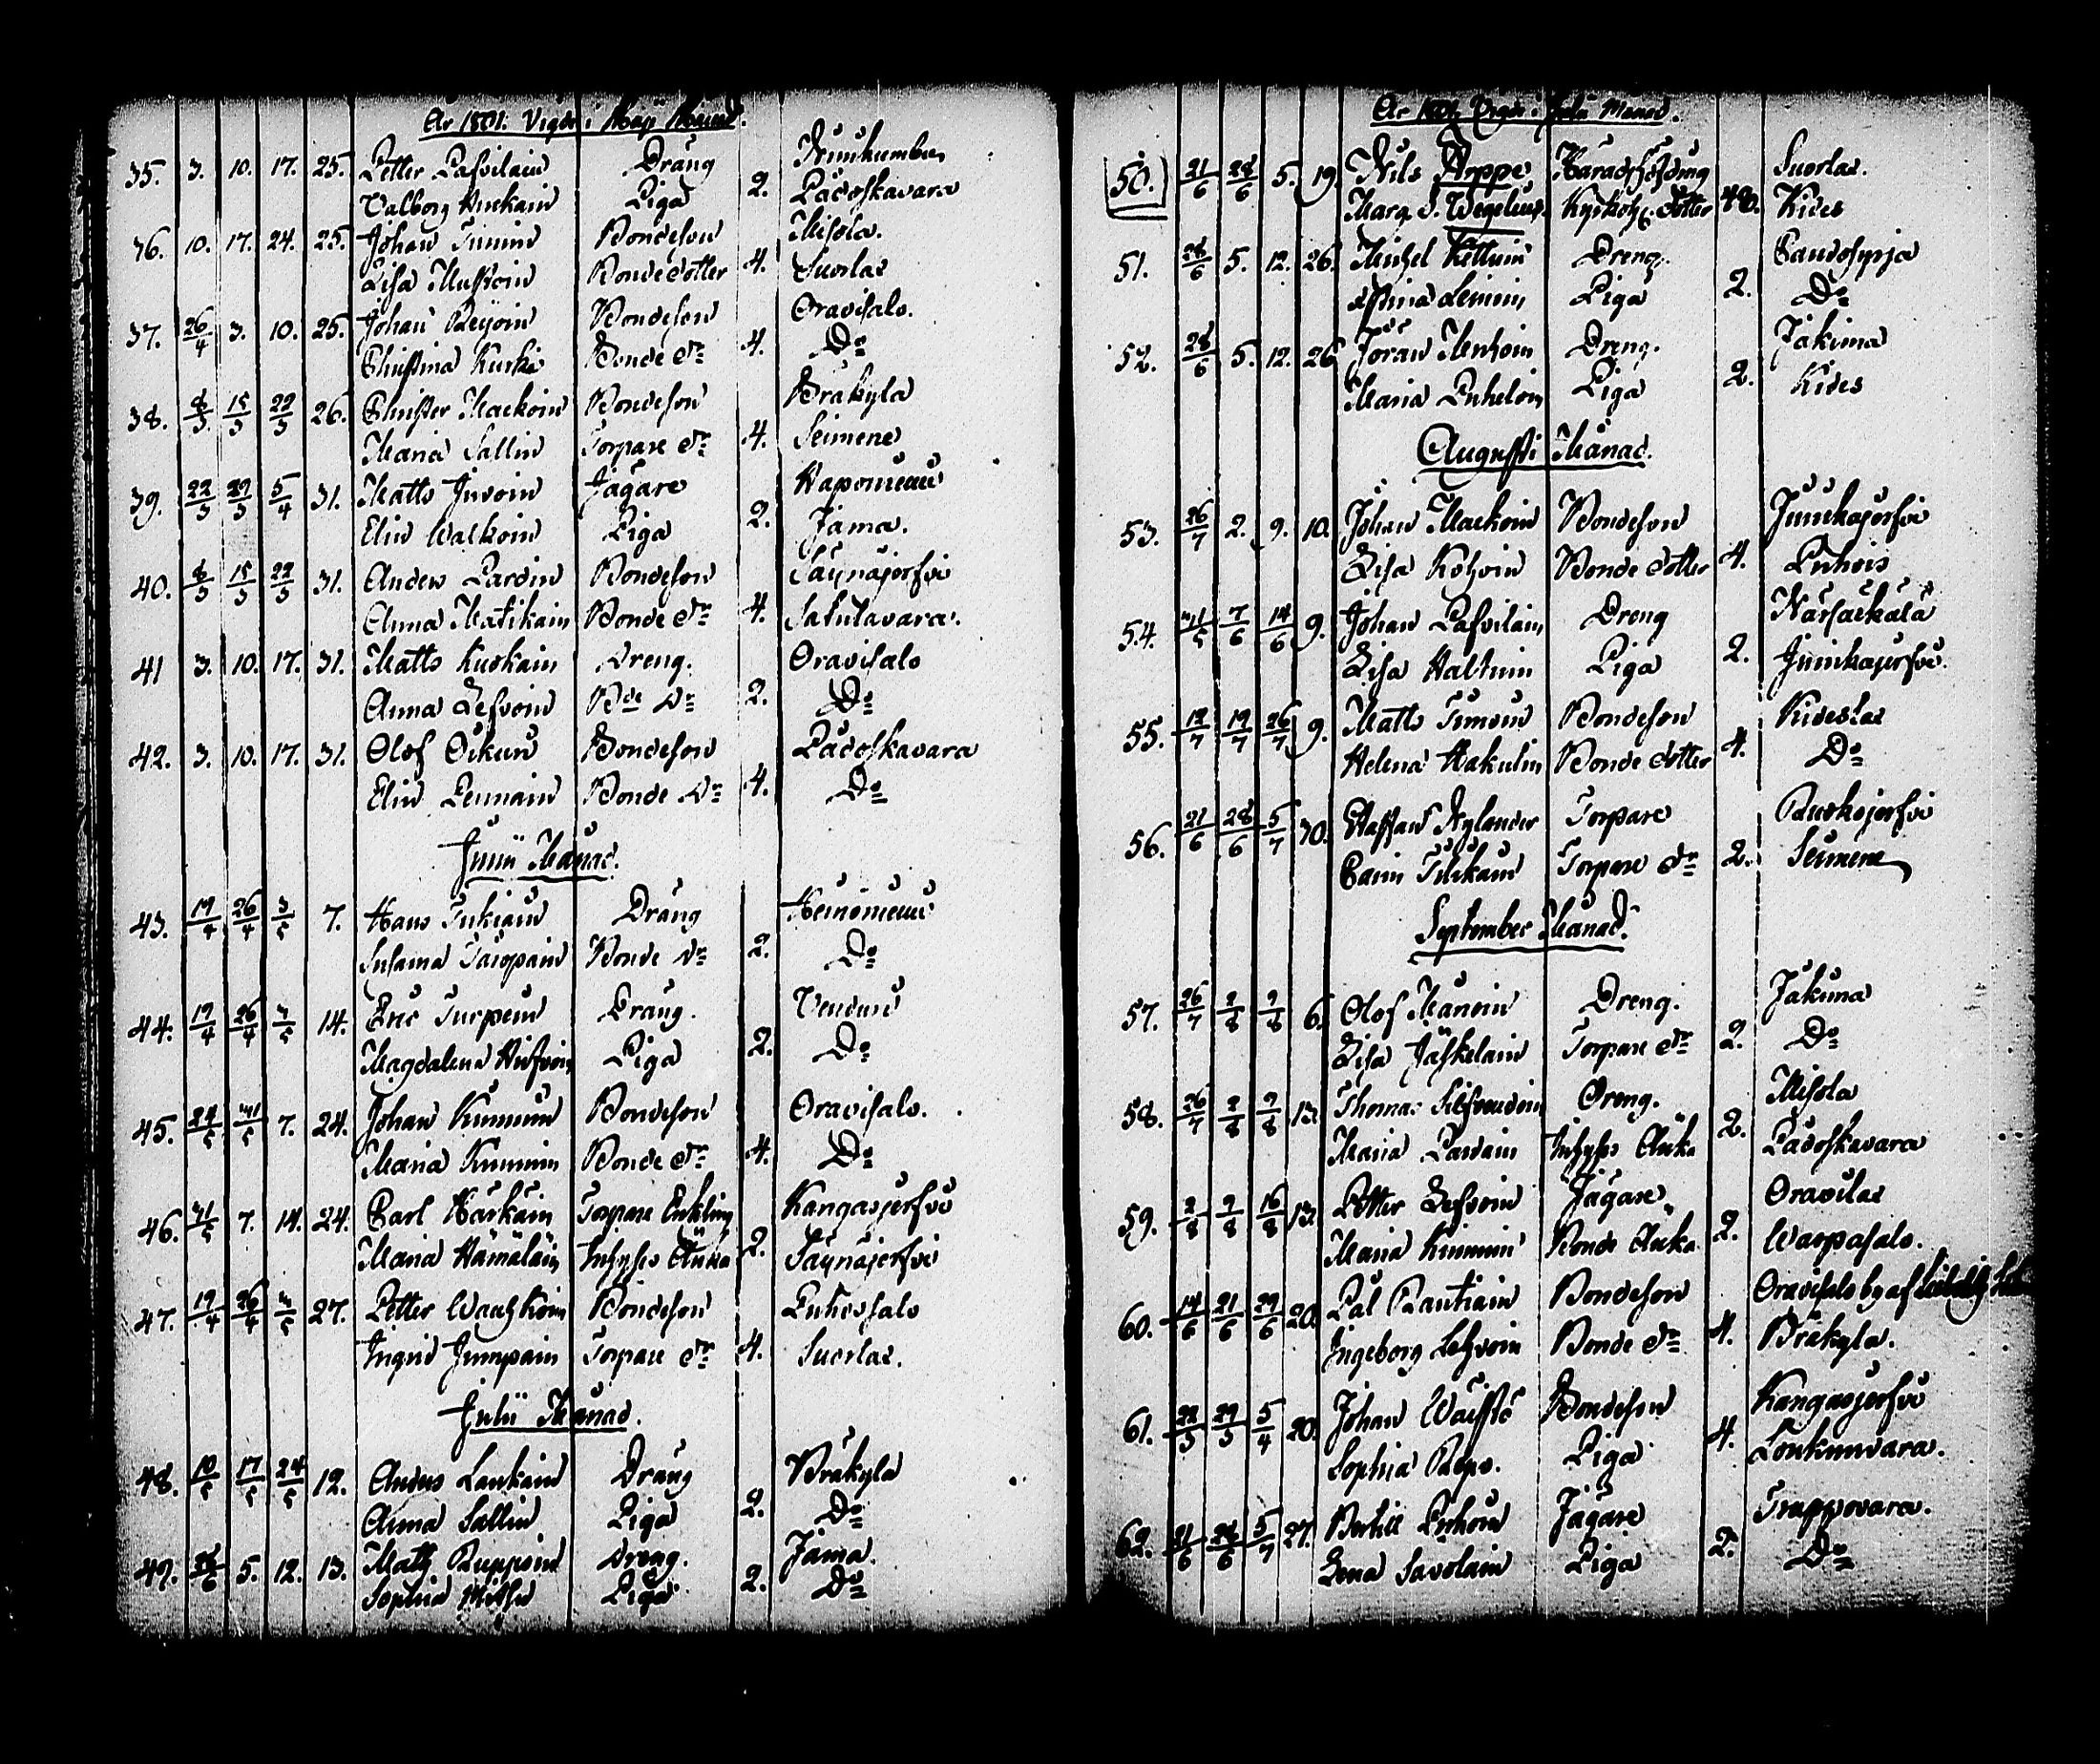 År 1801. Vigde i Maji Månad.
35. 3. 10. 17. 25. Petter Pasvilain Dräng 2. Niinikumbu
Valborg Huskain Piga Pådoskavara
36. 10. 17. 24. 25. Johan Simoin Bondeson 4. Misola.
Lisa Mustoin Bonde dotter Suorlax
37. 26/4 3. 10. 25. Johan Reijoin Bondeson 4. Oravisalo.
Christina Kurki Bonde dr Do
38. 8/3 15/3 22/3 26. Christer Mackoin Bondeson 4. Bråkylä
Maria Sallin Torpare dr Seimene
39. 22/3 29/3 5/4 31. Matts Juvoin Jägare 2. Haponiemi
Elin Walkoin Piga Jama.
40. 8/3 15/3 22/3 31. Anders Pardin Bondeson 4. Säynäjerfvi
Anna Matikain Bonde dr Satulavara.
41 3. 10. 17. 31. Matts Kuokain Dreng. 2. Oravisalo
Anna Lesvoin Bde Dr Do
42. 3. 10. 17. 31. Olof Oikun Bondeson 4. Pådoskavara
Elin Pennain Bonde Dr Do
Junii Månad.
43. 19/4 26/4 3/5 7. Hans Tukiain Dräng 2. Heinoniemi
Susanna Taropain Bonde Dr Do
44. 19/4 26/4 3/5 14. Eric Turpein Dräng. 2.
Magdalena Hirfvoin Piga Do
45. 24/5 31/5 7. 24. Johan Kinnunin Bondeson 4. Oravisalo.
Maria Kinnunin Bonde dr Do
46. 31/5 7. 14. 24. Carl Kärkäin Torpare Enkling 2. Kangasjerfvi
Maria Hämäläin Inhyses Änka Säynäjerfvi
47. 19/4 26/4 3/5 27. Petter Wauhkoin Bondeson 4. Puhossalo
Ingrid Jumpain Torpare dr Suorlax.
Julii Månad.
48. 10/5 17/5 24/5 12. Anders Laukain Dräng 2. Bråkylä
Anna Sallin Piga Do
49. 28/6 5. 12. 13. Matts Ruppoin Dreng. 2. Jama.
Sophia Piga Do
År 1801. Vigde i Julii Månad.
50. 21/6 28/6 5. 19. Nils Arppe Häradshöfding Suorlax.
Marg. S. Wegelius. Kyrkoh. dotter Kides
51. 28/6 5. 12. 26. Michel Kettuin Dreng. 2.
Stina Lemoin Piga Do
52. 28/6 5. 12. 26 Jöran Menhoin Dreng. 2. Jakima
Maria Puheloin Piga Kides
Augusti Månad.
53. 26/7 2. 9. 10. Johan Mackoin Bondeson 4. Juurikajerfvi
Lisa Kolvoin Bonde dotter Puhois
54. 31/5 7/6 14/6 9. Johan Pasvilain Dreng 2. Närsäckälä
Lisa Haltuin Piga Juurikajerfvi.
55. 12/7 19/7 26/7 9. Matts Simoin Bondeson 4. Kideslax
Helena Hakulin Bonde dotter Do
56. 21/6 28/6 5/7 30. Staffan Nylander Torpare 2. Ruokojerfvi
Carin Tiilikain Torpare dr Seimene
September Månad.
57. 26/7 2/8 9/8 6. Olof Manoin Dreng. 2. Jakima
Lisa Jäskeläin Torpare dr Do
58. 26/7 2/8 9/8 13. Thomas Silfvendoin Dreng. 2. Misola
Maria Pardain Inhyses Änka Pådoskavara
59. 2/8 9/8 16/8 13. Petter Lesvoin Jägare. 2. Oravilax
Maria Kinnunin Bonde Änka Warpasalo.
60. 14/6 21/6 29/6 20. Pål Rautiain Bondeson 4. Oravisalo by af
Ingeborg Lehvoin Bonde dr Bråkylä.
61. 22/3 29/3 5/4 20. Johan Waistö Bondeson 4. Kangasjerfvi
Sophia Repo. Piga Loukunvara.
62. 21/6 28/6 5/7 27. Bertill Pirhoin Jägare 2. Trappovara.
Lena Savolain Piga Do